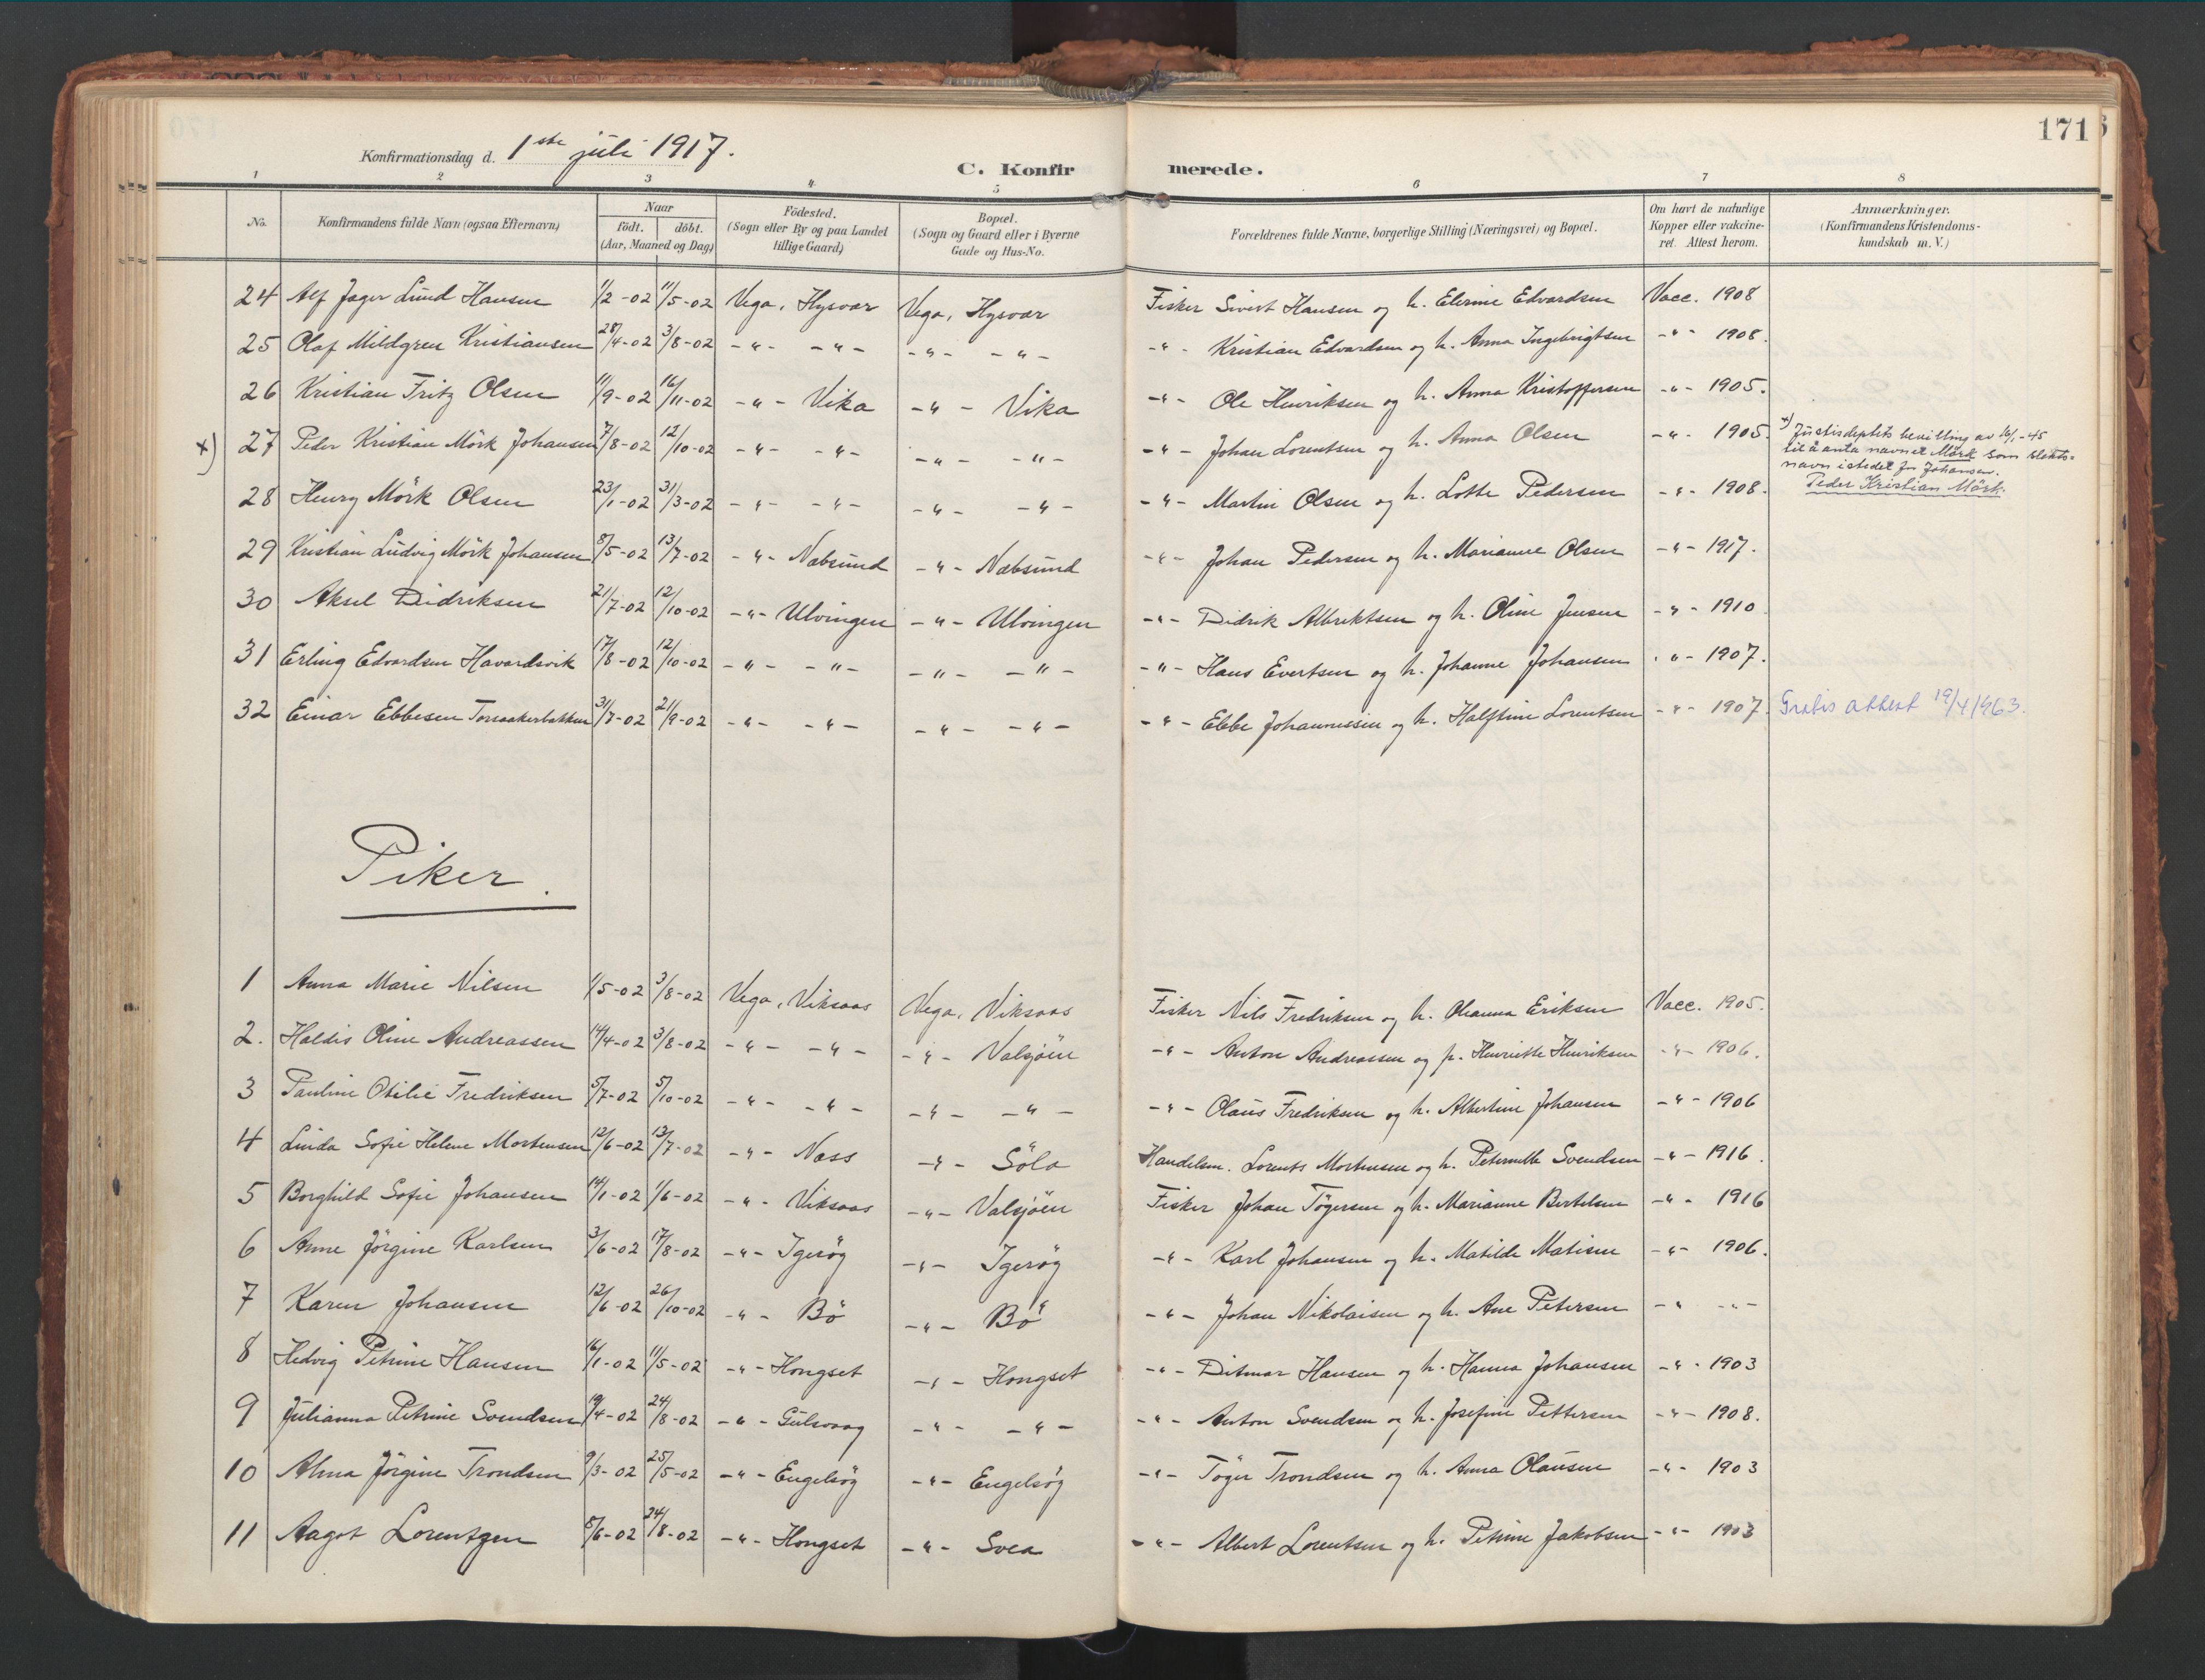 171
Konfirmationsdag d. 1ste juli 1917.
C. Konfirmerede.
1 2 3 4 5 6 7 8
No. Konfirmandens fulde Navn (ogsaa Efternavn) Naar födt. döbt. (Aar, Maaned og Dag) Födested. (Sogn eller By og paa Landet tillige Gaard) Bopæl. (Sogn og Gaard eller i Byerne Gade og Hus-No. Forældrenes fulde Navne, borgerlige Stilling (Næringsvei) og Bopæl. Om havt de naturlige Kopper eller vakcineret. Attest herom. Anmærkninger. (Konfirmandens Kristendomskundskab m. V.)
24 Alf Jager Lund Hansen 1/2-02 11/5-02 Vega, Hysvær Vega, Hysvær Fisker Sivert Hansen og h. Elerine Edvardsen Vacc. 1908
25 Olaf Mildgren Kristiansen 28/4-02 3/8-02 -"- -"- -"- -"- -"- Kristian Edvardsen og h. Anna Ingebrigtsen -"- 1908.
26 Kristian Fritz Olsen 11/9-02 16/11-02 -"- Vika -"- Vika -"- Ole Henriksen og h. Anna Kristoffersen -"- 1905.
x) 27 Peder Kristian Mörk Johansen 7/8-02 12/10-02 -"- -"- -"- -"- -"- Johan Lorentsen og h. Anna Olsen -"- 1905.
x) Justisdeptets bevilling av 16/1-45
til å anta navnet Mörk som slekts=
navn istedet for Johansen.
Peder Kristian Mörk.
28 Henry Mörk Olsen 23/1-02 31/3-02 -"- -"- -"- -"- -"- Martin Olsen og h. Lotte Pedersen -"- 1908.
29 Kristian Ludvig Mörk Johansen 8/5-02 13/7-02 -"- Nabsund -"- Nabsund -"- Johan Pedersen og h. Marianne Olsen -"- 1917.
30 Aksel Didriksen 21/7-02 12/10-02 -"- Ulvingen -"- Ulvingen -"- Didrik Albriktsen og h. Oline Jensen -"- 1910
31 Erling Edvardsen Havardsvik 17/8-02 12/10-02 -"- -"- -"- -"- -"- Hans Evertsen og h. Johanne Johansen -"- 1907.
32 Einar Ebbesen Torsaakerbakken 31/7-02 21/9-02 -"- -"- -"- -"- -"- Ebbe Johannessen og h. Halftine Lorentsen -"- 1907. Gratis attest 19/4 1963.
Piker.
1 Anna Marie Nilsen 1/5-02 3/8-02 Vega, Viksaas Vega, Viksaas Fisker Nils Fredriksen og h. Oleanna Eriksen Vacc. 1905.
2. Haldis Oline Andreassen 14/4-02 3/8-02 -"- -"- -"- Valsjöen -"- Anton Andreassen og h. Henriette Henriksen -"- 1906.
3 Pauline Otilie Fredriksen 5/7-02 5/10-02 -"- -"- -"- -"- -"- Olaus Fredriksen og h. Albertine Johansen -"- 1906
4 Linda Sofie Helene Mortensen 12/6-02 13/7-02 -"- Næss -"- Söla Handelsm. Lorents Mortensen og h. Peternelle Svendsen -"- 1916.
5 Borghild Sofie Johansen 14/1-02 1/6-02 -"- Viksaas -"- Valsjöen Fisker Johan Tögersen og h. Marianne Bertelsen -"- 1916
6 Anne Jörgine Karlsen 3/6-02 17/8-02 -"- Igeröy -"- Igeröy -"- Karl Johansen og h. Matilde Matisen -"- 1906.
7 Karen Johansen 12/6-02 26/10-02 -"- Bö -"- Bö -"- Johan Nikolaisen og h. Ane Petersen -"- -"-
8 Hedvig Petrine Hansen 16/1-02 11/5-02 -"- Hongset -"- Hongset -"- Ditmar Hansen og h. Hanna Johansen -"- 1903
9 Julianna Petrine Svendsen 19/4-02 24/8-02 -"- Gulsvaag -"- -"- -"- Anton Svendsen og h. Josefine Pettersen -"- 1908.
10 Alma Jörgine Trondsen 9/3-02 25/5-02 -"- Engelsöy -"- Engelsöy -"- Töger Trondsen og h. Anna Olausen -"- 1903
11 Aagot Lorentzen 8/6-02 24/8-02 -"- Hongset -"- Svea -"- Albert Lorentsen og h. Petrine Jakobsen -"- 1903